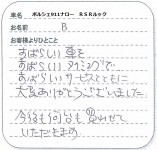 車名 ポルシェ911ナロー RSRルック
お名前 B
お客様よりひとこと
すばらしい車を
すばらしいタイミングで
すばらしいサービスとともに
大変ありがとうございました。
今後も何台も買わせて
いただきます。